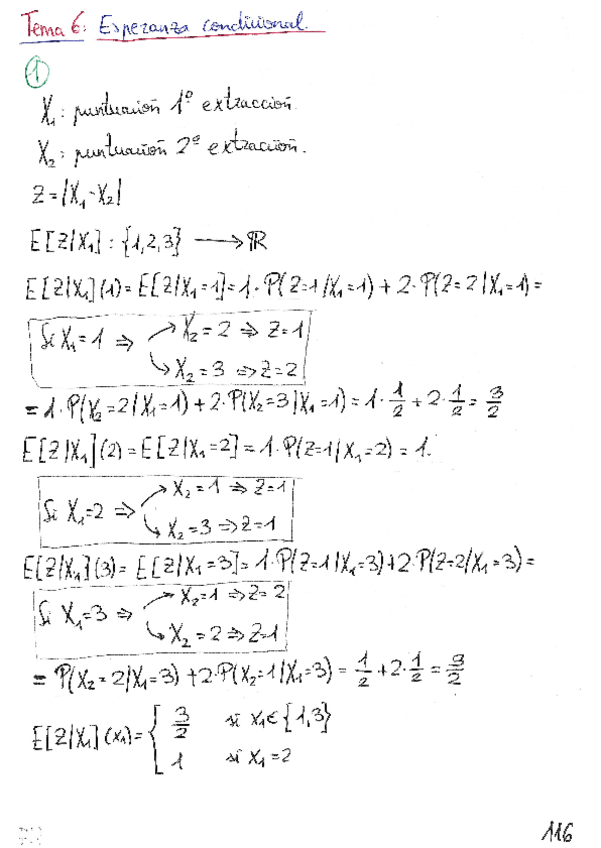 Tema 6: Esperanza condicional.
1
X₁: puntuación 1º extracción.
X₂: puntuación 2ª extracción.
Z = |X₁-X₂|
E[Z/X₁] : {1,2,3} ⟶ ℝ
E[Z/X₁](1) = E[Z/X₁=1] = 1·P(Z=1/X₁=1) + 2·P(Z=2/X₁=1) =
Si X₁=1 ⇒ ↗ X₂=2 ⇒ Z=1
↘ X₂=3 ⇒ Z=2
= 1·P(X₂=2/X₁=1) + 2·P(X₂=3/X₁=1) = 1·1/2 + 2·1/2 = 3/2
E[Z/X₁](2) = E[Z/X₁=2] = 1·P(Z=1/X₁=2) = 1.
Si X₁=2 ⇒ ↗ X₂=1 ⇒ Z=1
↘ X₂=3 ⇒ Z=1
E[Z/X₁](3) = E[Z/X₁=3] = 1·P(Z=1/X₁=3) + 2·P(Z=2/X₁=3) =
Si X₁=3 ⇒ ↗ X₂=1 ⇒ Z=2
↘ X₂=2 ⇒ Z=1
= P(X₂=2/X₁=3) + 2·P(X₂=1/X₁=3) = 1/2 + 2·1/2 = 3/2
E[Z/X₁](x₁) = { 3/2 si x₁∈{1,3}
1 si x₁=2
116